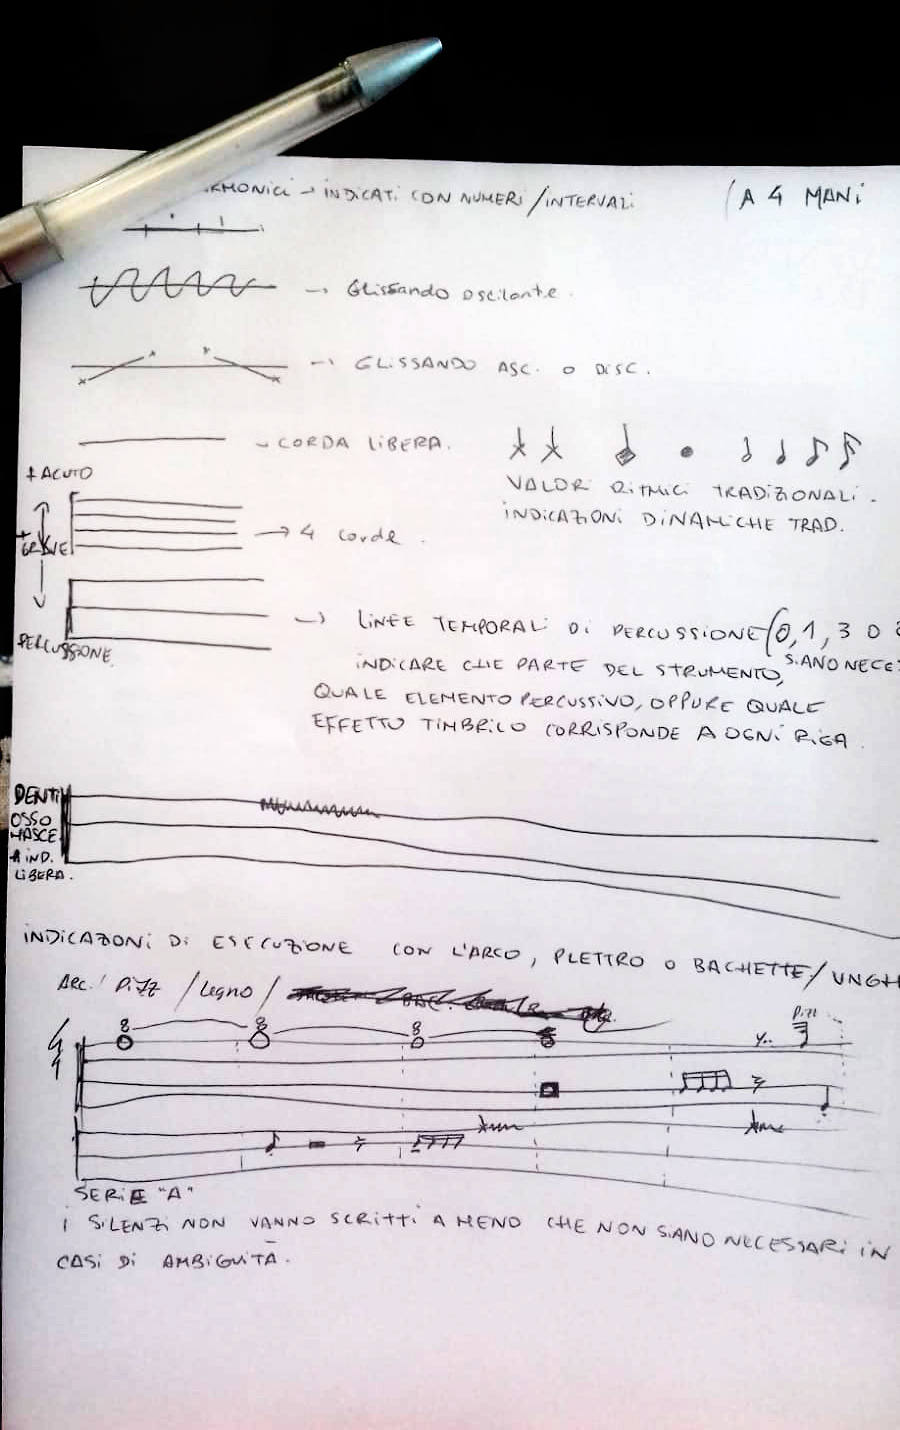 RMONICI → INDICATI CON NUMERI/INTERVALI (A 4 MANI
→ Glissando oscilante.
→ GLISSANDO ASC. O DISC.
- CORDA LIBERA.
VALORI RITMICI TRADIZIONALI.
INDICAZIONI DINAMICHE TRAD.
+ ACUTO
+ GRAVE
→ 4 corde.
PERCUSSIONE
→ LINEE TEMPORALI DI PERCUSSIONE (0, 1, 3 O
SIANO NECE
INDICARE CHE PARTE DEL STRUMENTO,
QUALE ELEMENTO PERCUSSIVO, OPPURE QUALE
EFFETTO TIMBRICO CORRISPONDE A OGNI RIGA.
DENTI
OSSO
MASCE
A IND.
LIBERA.
INDICAZIONI DI ESECUZIONE CON L'ARCO, PLETTRO O BACHETTE/UNGH
ARC. / PIZZ / Legno /
4
4
8 8 8
Pizz
SERIE "A"
I SILENZI NON VANNO SCRITTI A MENO CHE NON SIANO NECESSARI IN
CASI DI AMBIGUITÀ.